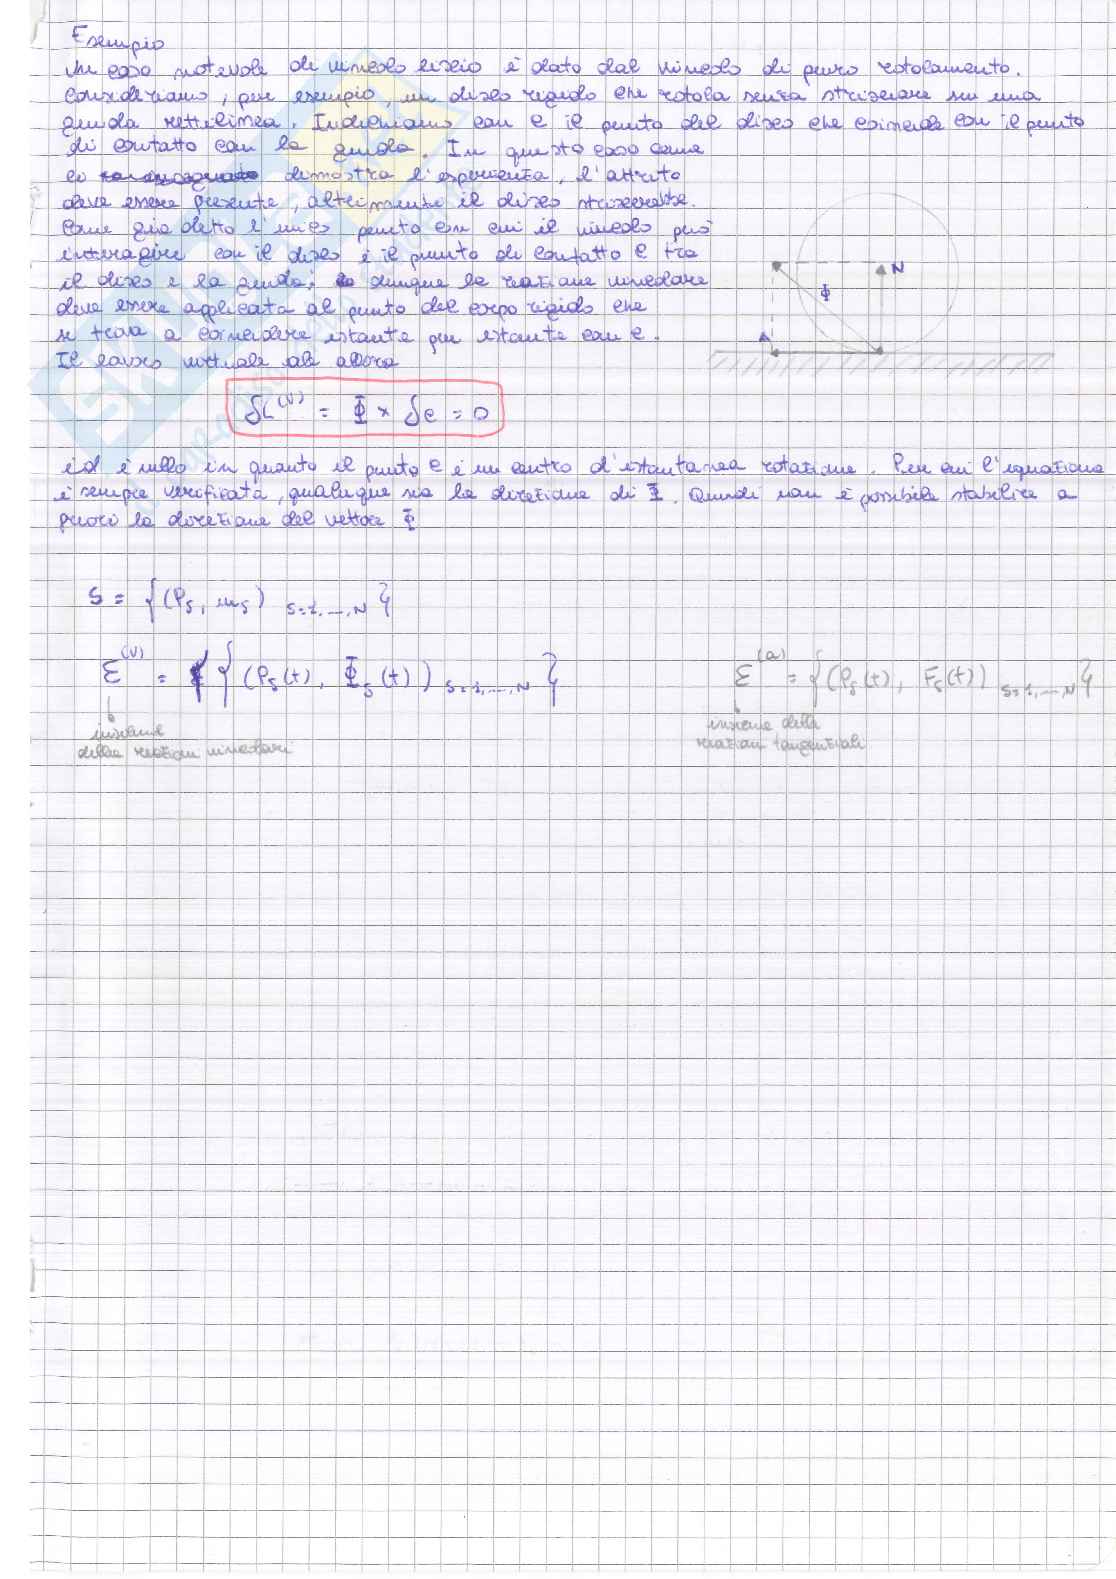 Esempio
Un caso notevole di vincolo liscio è dato dal vincolo di puro rotolamento.
Consideriamo, per esempio, un disco rigido che rotola senza strisciare su una
guida rettilinea. Indichiamo con C il punto del disco che coincide con il punto
di contatto con la guida. In questo caso come
lo dimostra l'esperienza, l'attrito
deve essere presente, altrimenti il disco striscerebbe.
Come già detto l'unico punto con cui il vincolo può
interagire con il disco è il punto di contatto C tra
il disco e la guida; dunque la reazione vincolare
deve essere applicata al punto del corpo rigido che
si trova a coincidere istante per istante con C.
Il lavoro virtuale è allora
N
Φ
A
δL(v) = Φ × δC = 0
ed è nullo in quanto il punto C è un centro d'istantanea rotazione. Per cui l'equazione
è sempre verificata, qualunque sia la direzione di Φ. Quindi non è possibile stabilire a
priori la direzione del vettore Φ
S = {(Ps, ms) s=1,...,N}
ε(v) = {(Ps(t), Φs(t)) s=1,...,N}
ε(a) = {(Ps(t), Fs(t)) s=1,...,N}
insieme
delle reazioni vincolari
insieme delle
reazioni tangenziali